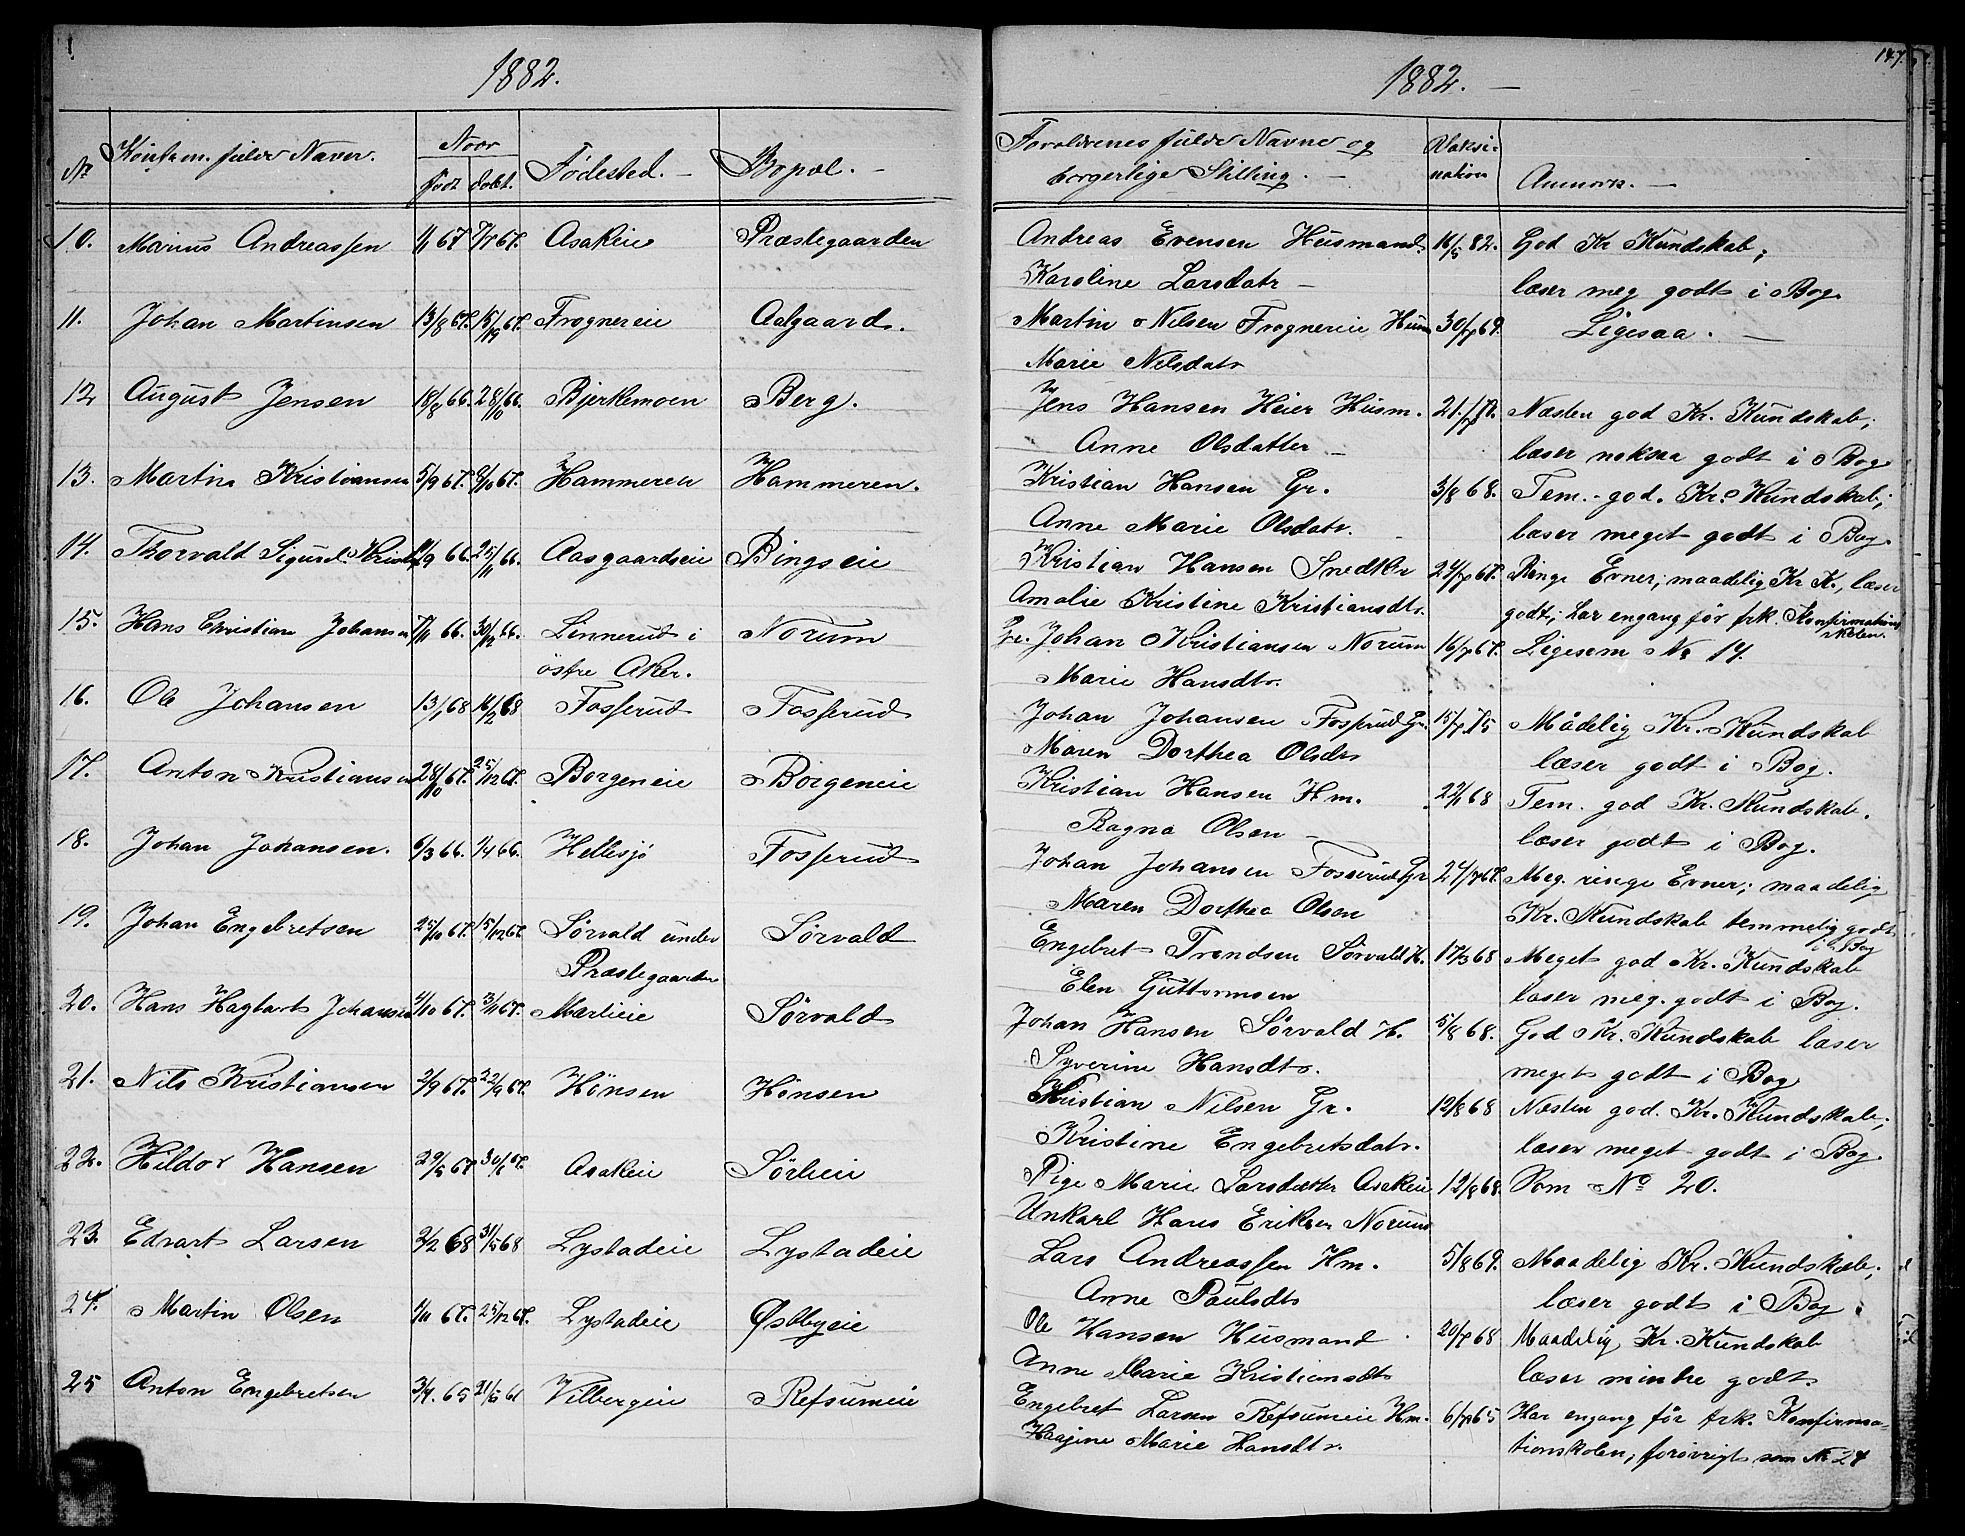 1882.
Nr Konfirm. fulde Navne. Naar født døbt. Fødested. Bopæl.
10. Marius Andreassen 1/1 67 7/7 67. Asakeie Præstegaarden
11. Johan Martinsen 13/8 67. 15/12 67. Frognereie Aalgaard.
12 August Jensen 18/8 66. 28/10 66. Bjerkemoen Berg.
13. Martin Kristiansen 5/9 67. 6/10 67. Hammeren Hammeren.
14. Thorvald Sigurd 66. 25/11 66. Aasgaardseie Bingseie
15. Hans Christian Johansen 7/11 66. 30/12 66. Linnerud i Norum
østre Aker.
16. Ole Johansen 13/1 68 16/2 68 Fosserud Fosserud
17. Anton Kristiansen 28/10 67. 25/12 67. Borgeneie Borgeneie
18. Johan Johansen. 6/3 66. 1/4 66. Hellesjø Fosserud
19. Johan Engebretsen 25/10 67. 15/12 67. Sørvald under Sørvald
Præstegaarden
20. Hans Hagbart Johansen 1/10 67. 3/11 67. Marlieie Sørvald
21. Nils Kristiansen 2/9 67. 22/9 67. Hønsen Hønsen
22. Hildor Hansen 29/5 67 30/6 67. Asakeie Sørlieie
23. Edvart Larsen 2/2 68 31/5 68 Lystadeie Lystadeie
24. Martin Olsen 1/11 67. 25/12 67. Lystadeie Østbyeie
25 Anton Engebretsen 3/4. 65 21/5 Vilbergeie Refsumeie
147.
1882. —
Forældrenes fulde Navne og borgerlige Stilling. Vaksination Anmærk.
Andreas Evensen Husmand. 16/5 82. God Kr Kundskab;
Karoline Larsdatr læser meg godt i Bog.
Martin Nilsen Frognereie Husm 30/7 69. Ligesaa.
Marie Nilsdatr
Jens Hansen Heier Husm. Næsten god Kr. Kundskab;
Anne Olsdatter læser noksaa godt i Bog
Kristian Hansen Gr. 3/8 68. Tem. god. Kr. Kundskab;
Anne Marie Olsdatr. læser meget godt i Bog.
Kristian Hansen Snedker 24/7 67. Ringe Evner; maadelig Kr K., læser
Amalie Kristine Kristiansdtr. godt; har engang før frk. Konfirmations
skolen.
Gr. Johan Kristiansen Norum 16/7 67. Ligesom No 14.
Marie Hansdtr.
Johan Johansen Fosserud Gr. 15/7 75 Mådelig Kr. Kundskab
Maren Dorthea Olsdtr læser godt i Bog.
Kristian Hansen Hm. 22/1 68 Tem. god Kr. Kundskab.
Ragna Olsen læser godt i Bog.
Johan Johansen Fosserud Gr 24/7 67. Meg. ringe Evner; maadelig
Maren Dorthea Olsen Kr. Kundskab temmelig godt
i Bog
Engebret Trondsen Sørvald H. 17/3 68 Meget god Kr. Kundskab
Elen Guttormsen læser meg. godt i Bog.
Johan Hansen Sørvald H. 5/8 68. God Kr. Kundskab læser
Syverine Hansdtr. meget godt i Bog
Kristian Nilsen Gr. 12/8 68 Næsten god. Kr. Kundskab;
Kristine Engebretsdatr. læser meget godt i Bog.
Pige Marie Larsdatter Asakeie 12/8 68. Som No 20.
Unkarl Hans Eriksen Norum
Lars Andreassen Hm. 5/8 69. Maadelig Kr. Kundskab;
Anne Paulsdtr læser godt i Bog.
Ole Hansen Husmand. 20/7 68 Maadelig Kr. Kundskab
Anne Marie Kristiansdtr læser mindre godt.
Engebret Larsen Refsumeie Hm. 6/7 65 Har engang før frk. Konfirma-
Marie Hansdtr. tionskolen; forøvrigt som No 24